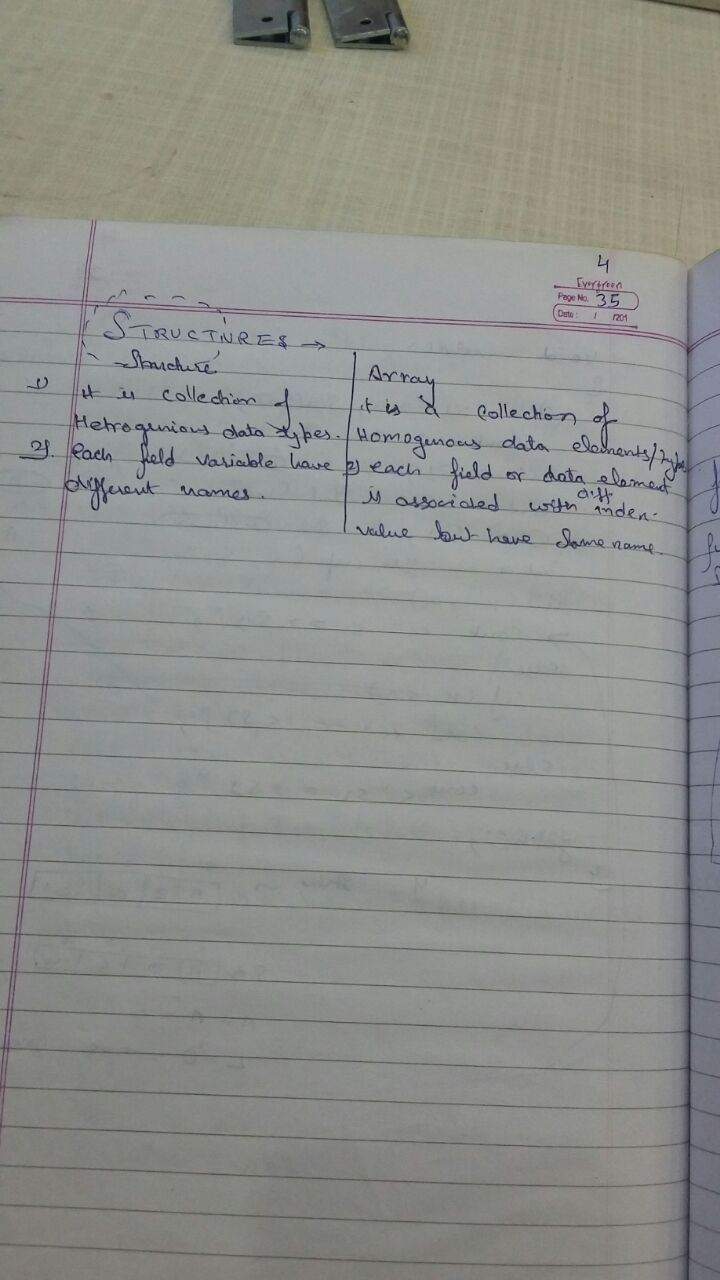 4
Evergreen
Page No. 35
Date: / /201
STRUCTURES →
Structure
1) it is collection of
Hetrogenious data types.
2). each field variable have
different names.
Array
it is a collection of
Homogenous data elements/types
2) each field or data element
is associated with diff index.
value but have same name.